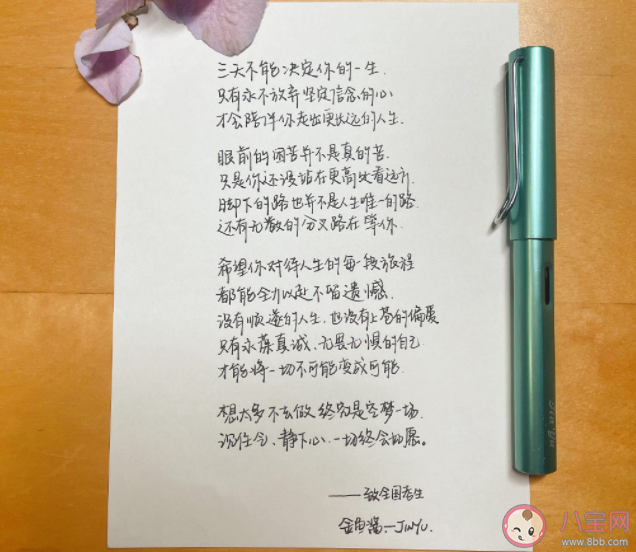 三天不能决定你的一生.
只有永不放弃坚定信念的心
才会陪伴你走出更长远的人生.
眼前的困苦并不是真的苦.
只是你还没站在更高处看远方
脚下的路也并不是人生唯一的路.
还有无数的分叉路在等你.
希望你对待人生的每一段旅程
都能全力以赴不留遗憾.
没有顺遂的人生,也没有上苍的偏爱
只有永葆真诚、无畏无惧的自己
才能将一切不可能变成可能.
想太多不去做 终究是空梦一场.
沉住气、静下心.一切终会如愿。
——致全国考生
金鱼酱—JINYU.
八宝网
www.8bb.com